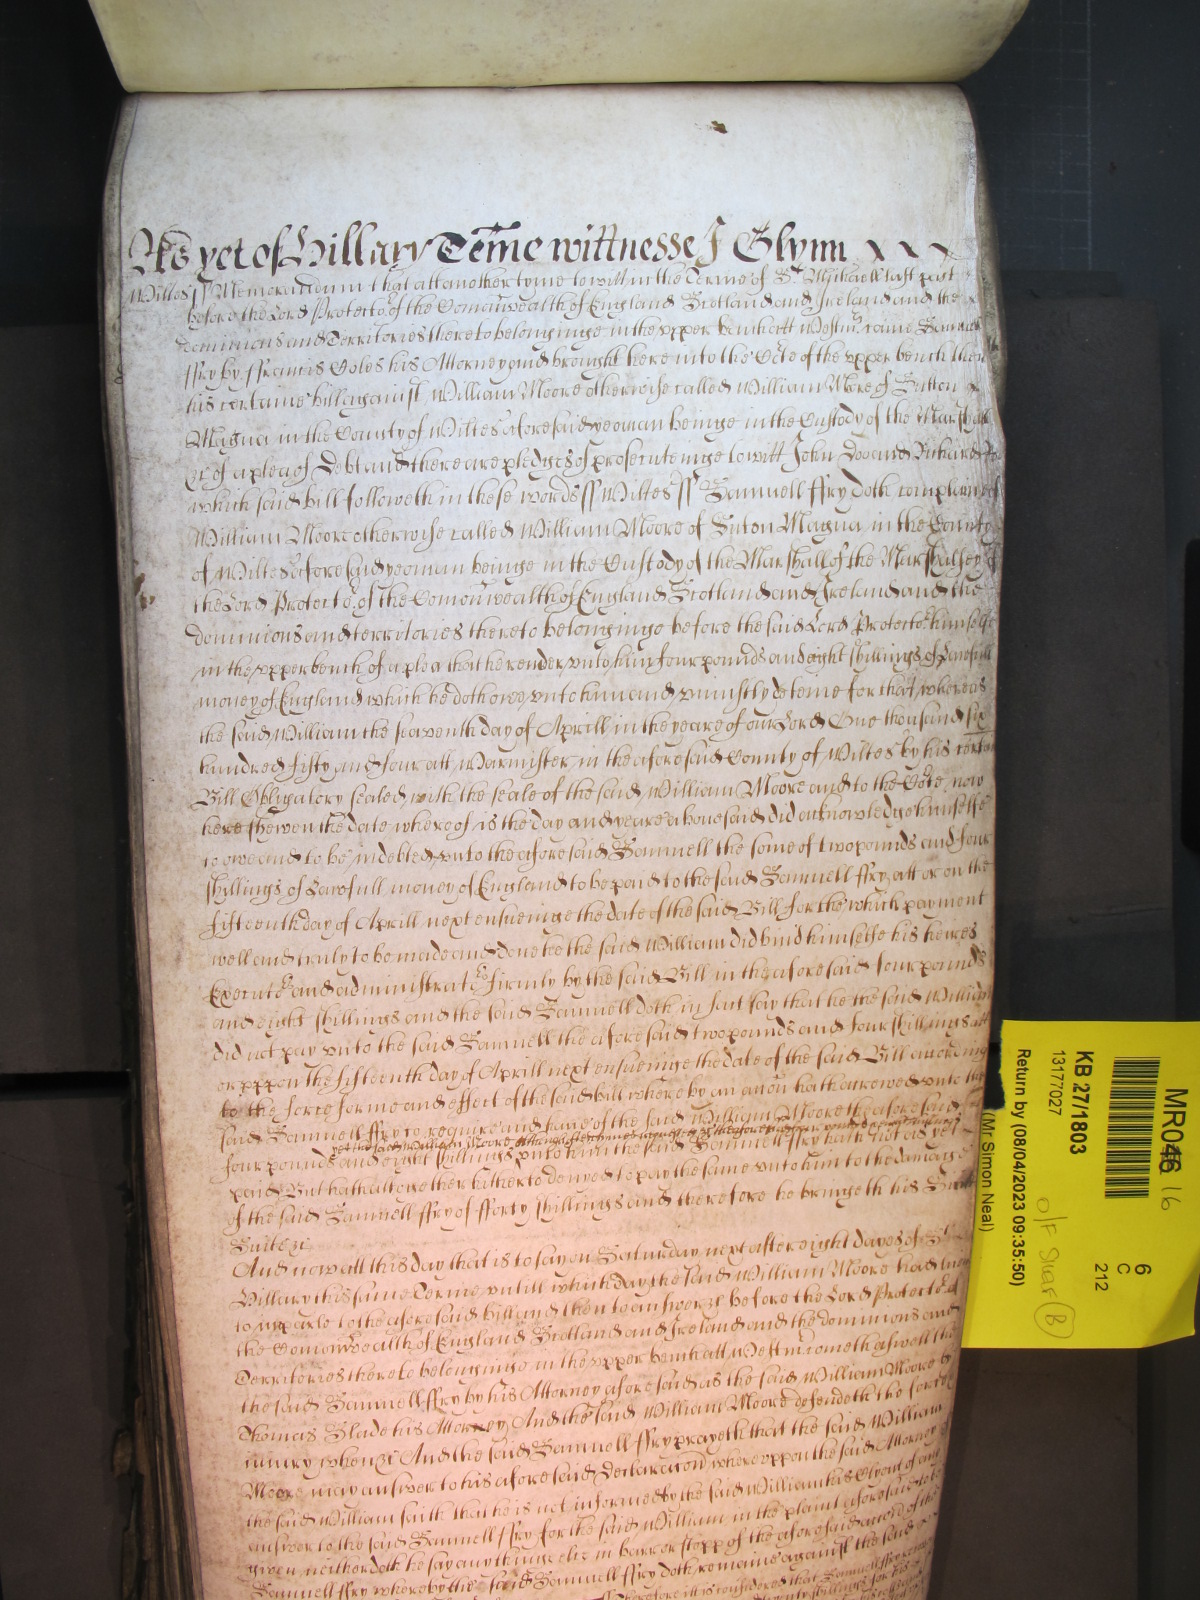 As yet of Hillary Terme wittnesse J Glynn
Wiltes ss Memorandum that att another tyme to witt in the Terme of St Michaell last past
before the Lord Protector of the Comonwealth of England Scotland and Ireland and the
dominions and Territories thereto belonginge in the upper bench att Westmr came Samuell
ffry by ffrancis Coles his Attorney and brought here into the Cote of the upper bench then
his certaine bill against William Moore otherwise called William More of Sutton
Magna in the County of Wiltes aforesaid yeoman beinge in the Custody of the Marshall
zc of a plea of Debt and there are pledges of prosecuteinge to witt John Doo and Richard
which said bill followeth in these words ss Wiltes ss Samuell ffry doth complaine of
William Moore otherwise called William Moore of Suton Magna in the County
of Wiltes aforesaid yeoman beinge in the Custody of the Marshall of the Marshalsey of
the Lord Protector of the Comonwealth of England Scotland and Ireland and the
dominions and territories thereto belonginge before the said Lord Protector himselfe
in the upper bench of a plea that he render unto him four pounds and eight shillings of Lawfull
money of England which he doth owe unto him and uniustly deteine for that whereas
the said William the seaventh day of Aprill in the yeare of our Lord One thousand six
hundred fifty and four att Warmister in the aforesaid County of Wiltes by his certaine
Bill Obligatory sealed with the seale of the said William Moore and to the Cote now
here shewen the date whereof is the day and yeare abovesaid did acknowledge himselfe
to owe and to be indebted unto the aforesaid Samuell the some of two pounds and four
shillings of Lawfull money of England to be paid to the said Samuell ffry att or on the
fifteenth day of Aprill next ensueinge the date of the said Bill for the which payment
well and truly to be made and done he the said William did bind himselfe his heires
Executors and administrators firmly by the said Bill in the aforesaid four pounds
and eight shillings and the said Samuell doth in fact say that he the said William
did not pay unto the said Samuell the aforesaid two pounds and four shillings att
or uppon the fifteenth day of Aprill next ensueinge the date of the said Bill according
to the force forme and effect of the said bill whereby an accon hath accrewed unto the
said Samuell ffry to require and have of the said William Moore the aforesaid
yet the said William Moore
four pounds and eight shillings unto him the said Samuell ffry hath not as yet
paid But hath altogether hitherto denyed to pay the same unto him to the damage
of the said Samuell ffry of fforty shillings and therefore he bringeth his Suite
Suite zc
And now att this day that is to say on Saturday next after eight dayes of St
Hillary this same Terme untill which day the said William Moore had
to imparle to the aforesaid bill and then to answere zc before the Lord Protector of
the Comonwealth of England Scotland and Ireland and the dominions and
Territories thereto belonginge in the upper bench att Westmr cometh aswell the
the said Samuell ffry by his Attorney aforesaid as the said William Moore by
Thomas Slade his Attorney And the said William Moore defendeth the force
iniury when zc And the said Samuell ffry prayeth that the said William
Moore may answer to his aforesaid Declaracon whereuppon the said Attorney of
the said William saith that he is not informed by the said William his Clyent of any
answer to the said Samuell ffry for the said William in the plaint aforesaid to be
given neither doth he say any thinge else in barr or stopp of the aforesaid accon of the
Samuell ffry whereby the said Samuell ffry doth remaine against the said
Therefore itt is considered that Samuell ffry
MR046 16
6
C
212
KB 27/1803
13177027
O/F Snaf (B)
Return by (08/04/2023 09:35:50)
(Mr Simon Neal)